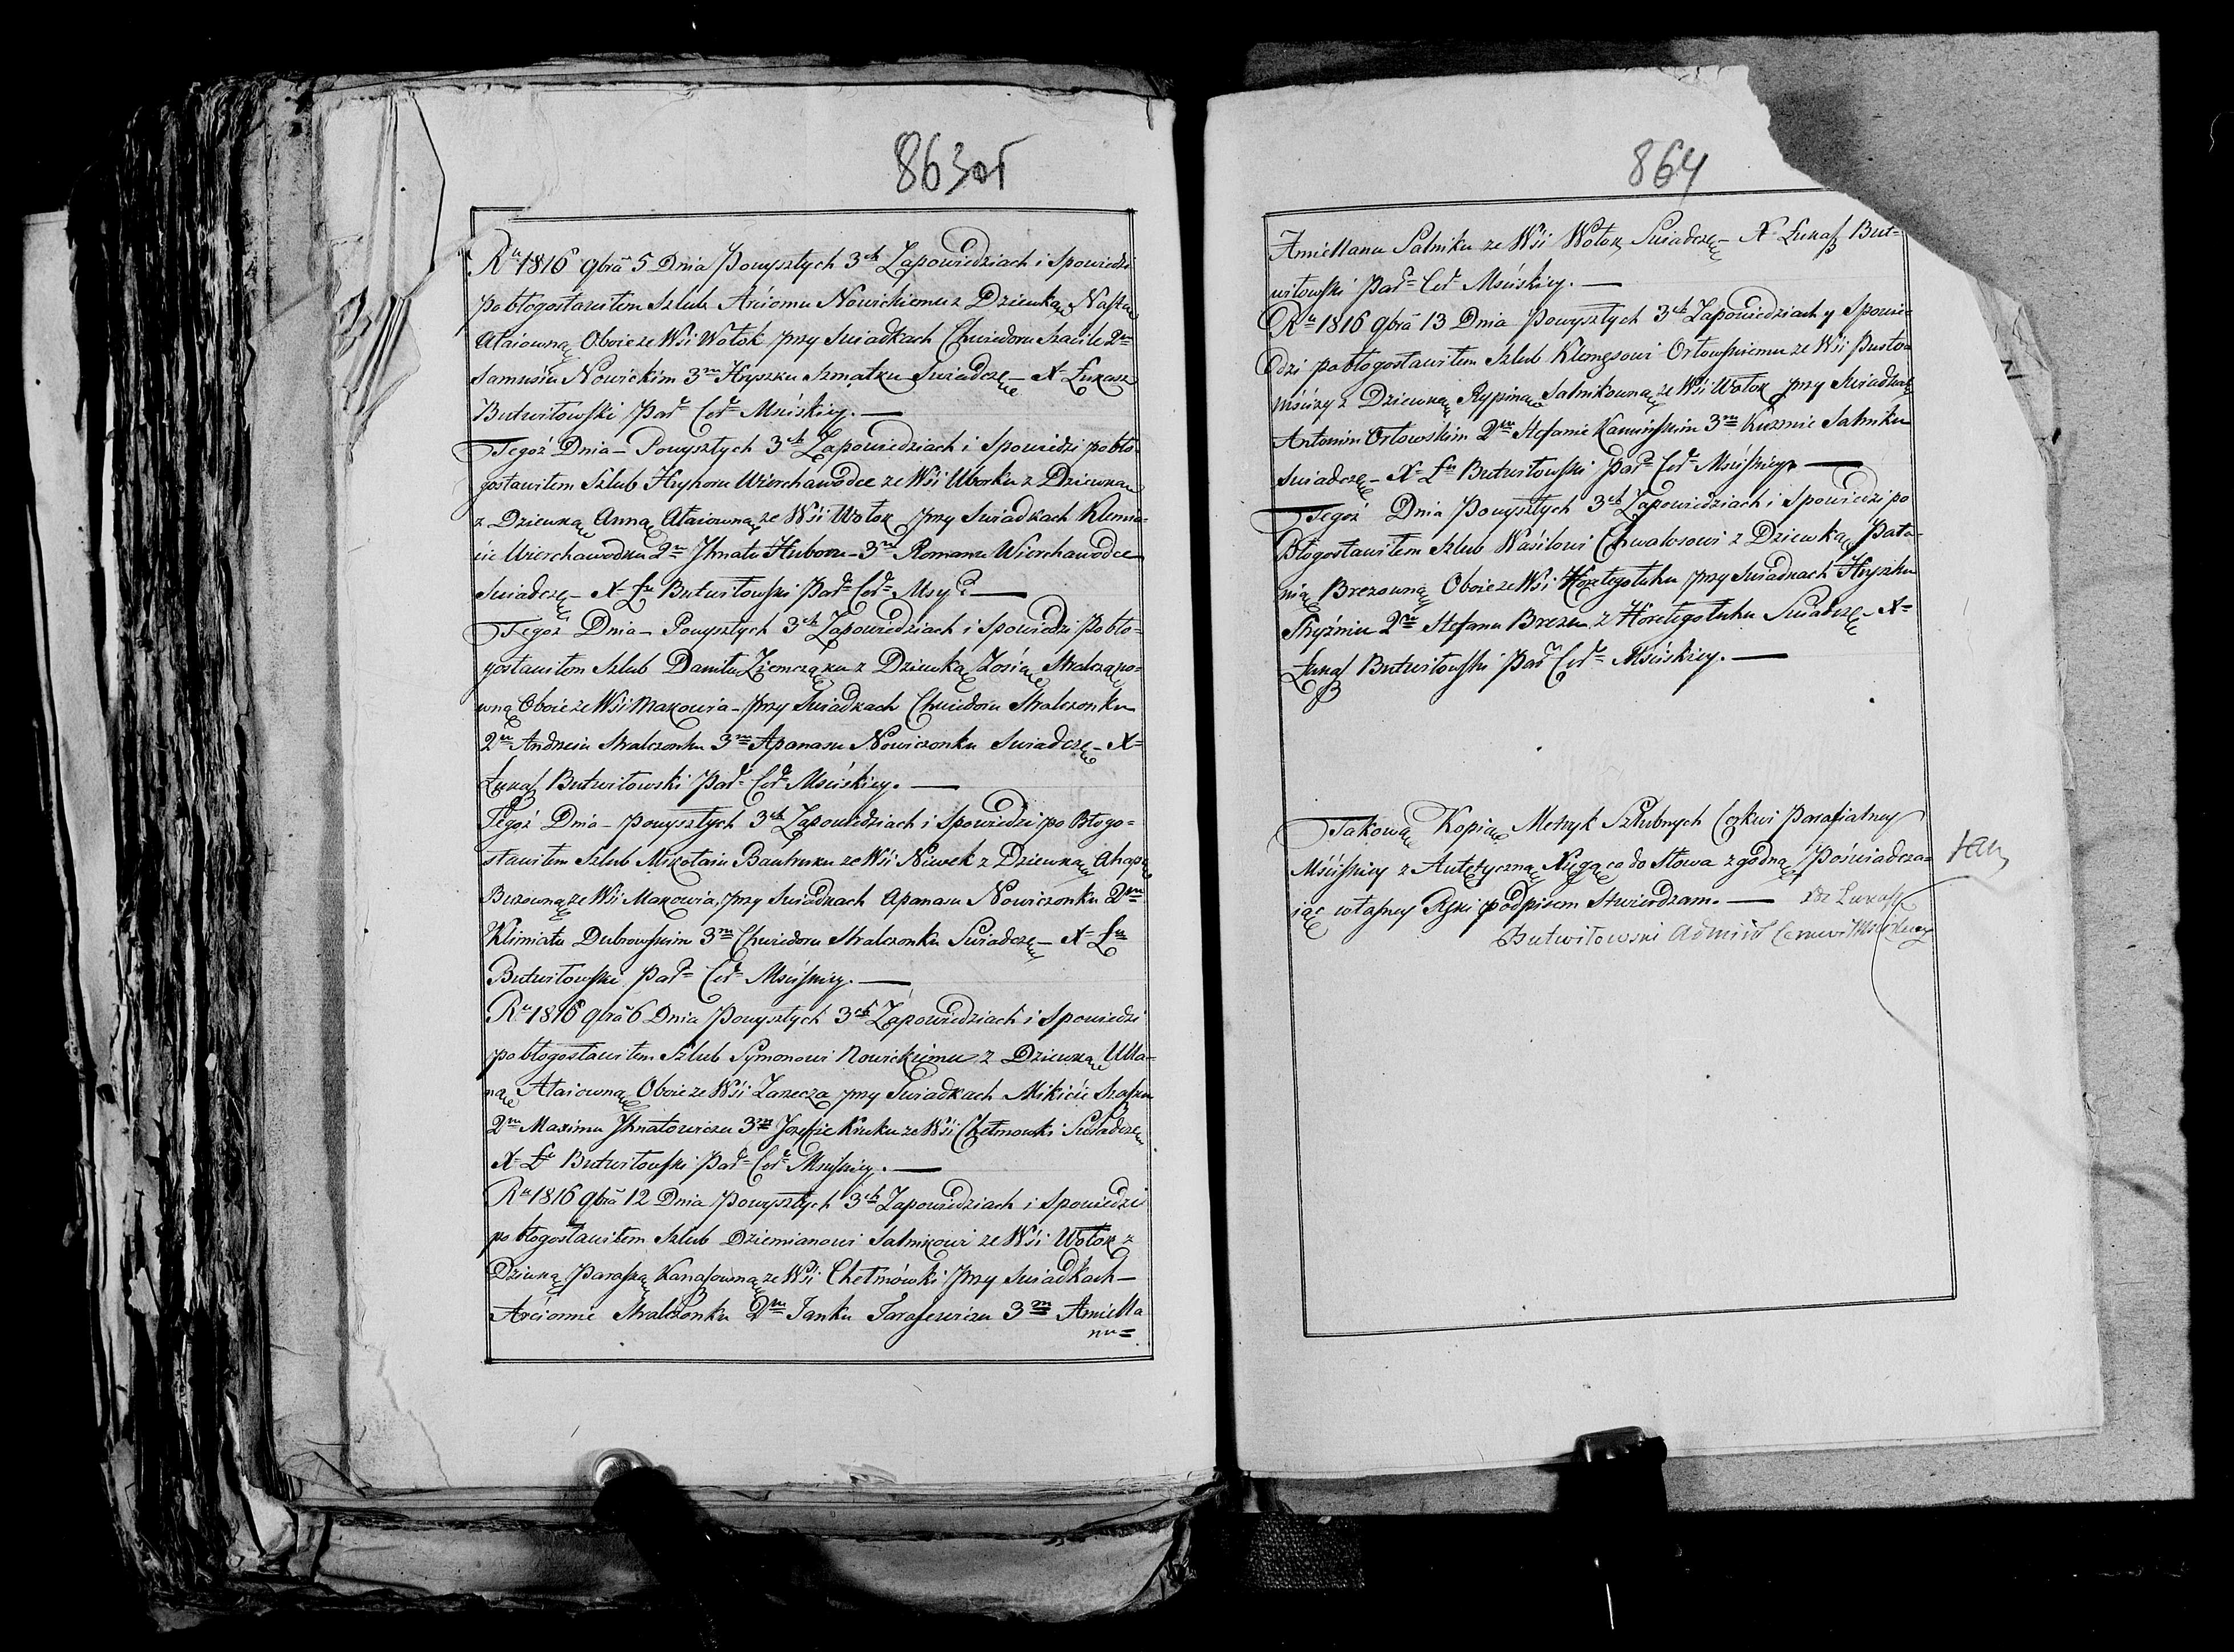 863об
Rᵘ 1816 9brã 5 Dnia Powyszłych 3ᶜʰ Zapowiedziach i Spowiedzi
pobłogosławiłem Szlub Arciomu Nowickiemu z Dziewką Nastą
Ałaiowną Oboie ze Wsi Wołok przy Swiadkach Chwiedoru Szacile 2ᵐ
Samusiu Nowickim 3ᵐ Hryszku Szmatku Swiadczę – X Łukasz
Butwiłowski Parᵒ Cerᵒ Msciskiey. —
Tegoż Dnia – Powyszłych 3ᶜʰ Zapowiedziach i Spowiedzi pobło-
gosławiłem Szlub Hryhoru Wierchawodce ze Wsi Uborku z Dziewką
z Dziewką Anną Ałaiowną ze Wsi Wołok przy Swiadkach Klemia-
cie Wierchawodzku 2ᵐ Jhnatu Huboru – 3ᵐ Romanu Wierchawodce
Swiadczę – X Łᵘ Butwiłowski Parᵒ Cerᵒ Msyᵒ —
Tegoż Dnia – Powyszłych 3ᶜʰ Zapowiedziach i Spowiedzi Pobło-
gosławiłem Szlub Daniłu Ziemczązku z Dziewką Zosią Stralczapo-
wną Oboie ze Wsi Makowia – przy Swiadkach Chwiedoru Stralczonku
2ᵐ Andreiu Stralczonku 3ᵐ Apanasu Nowiczonku Swiadczę – X
Łukaſz Butwiłowski Parᵒ Cerᵒ Msciskiey. —
Tegoż Dnia – Powyszłych 3ᶜʰ Zapowiedziach i Spowiedzi po Błogo-
sławiłem Szlub Mikołaiu Bautruku ze Wsi Niwek z Dziewką Ahapą
Buzowną ze Wsi Makowia, przy Swiadkach Apanasu Nowiczonku 2ᵐ
Klimiatu Dubrowſkim 3ᵐ Chwiedoru Stralczonku Swiadczę – X Łᵘ
Butwiłowſki Parᵒ Cerᵒ Msciſkiey. —
Rᵘ 1816 9brã 6 Dnia Powyszłych 3ᶜʰ Zapowiedziach i Spowiedzi
pobłogosławiłem Szlub Symonowi Nowickiemu z Dziewką Ulla-
ną Ałaiowną Oboie ze Wsi Zarecza przy Swiadkach Mikicie Szaſzku
2ᵐ Maximu Jhnatowiczu 3ᵐ Jozefie Kruku ze Wsi Chełmowki Swiadczę
X Łᵘ Butwiłowſki Parᵒ Cerᵒ Msciſkiey. —
Rᵘ 1816 9brã 12 Dnia Powyszłych 3ᶜʰ Zapowiedziach i Spowiedzi
pobłogosławiłem Szlub Dziemianowi Salnikowi ze Wsi Wołok z
Dziewką Paraſką Kanaſzowną ze Wsi Chełmówki przy Swiadkach –
Arciomie Stralczonku 2ᵐ Janku Taraſewiczu 3ᵐ Amiella
nu=
864
Amiellanu Salniku ze Wsi Wołok Swiadczę – X Łukaſz But-
wiłowſki Parᵒ Cerᵒ Msciskiey. —
Rᵘ 1816 9brã 13 Dnia Powyszłych 3ᶜʰ Zapowiedziach y Spowie-
dzi pobłogosławiłem Szlub Klemęsowi Orłowſkiemu ze Wsi Pustey
Mscizy z Dziewką Rypiną Salnikowną ze Wsi Wołok przy Swiadkach
Antonim Orłowskim 2ᵐ Stefanie Kaminſkim 3ᵐ Kuzmie Salniku
Swiadczę – X Łᵘ Butwiłowſki Parᵒ Cerᵒ Msciſkiey —
Tegoż Dnia Powyszłych 3ᶜʰ Zapowiedziach i Spowiedzi po
Błogosławiłem Szlub Wasilowi Chwałosowi z Dziewką Pała-
nią Brezowną Oboie ze Wsi Horełegołuhu przy Swiadkach Hryszku
Pryżniu 2ᵐ Stefanu Brezu z Horełegołuhu Swiadczę X
Łukaſz Butwiłowſki Parᵒ Cerᵒ Msciskiey. —
Takową Kopią Metryk Szlubnych Cerkwi Parafialney
Msciſkiey z Autętyczną Xięgą co do Słowa zgodną Poświadcza-
iąc własney Ręki podpisem stwierdzam. — Xdz Łukaſz
Butwiłowski Admist Cerkwi Msciskiey